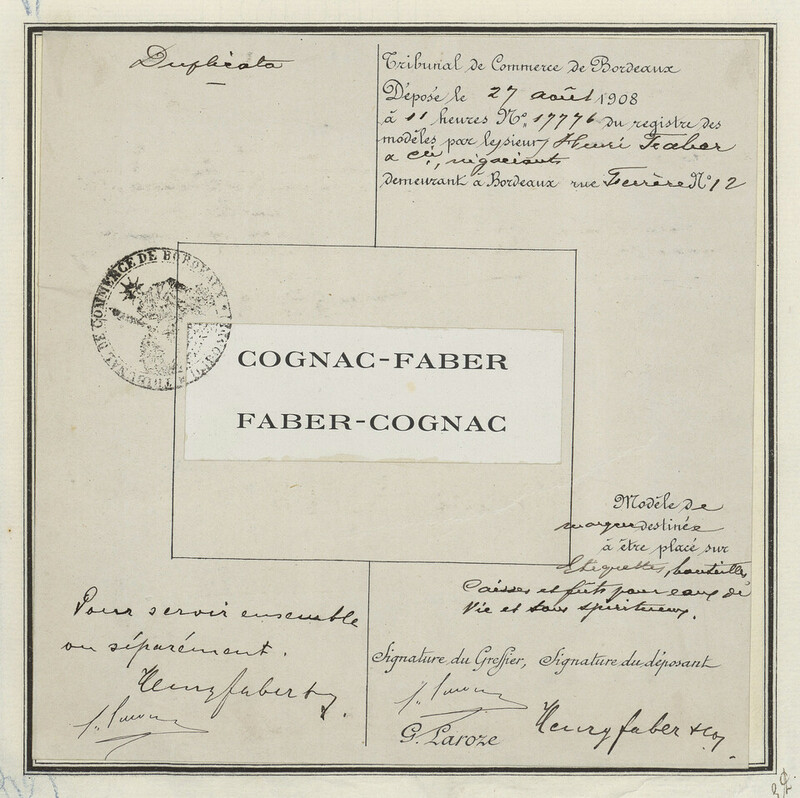 Duplicata
Tribunal de Commerce de Bordeaux
Déposé le 27 août 1908
à 11 heures N°. 17776 du registre des
modèles par le sieur Henri Faber
& Cie, négociants
demeurant à Bordeaux rue Ferrère N° 12
TRIBUNAL DE COMMERCE DE BORDEAUX
COGNAC-FABER
FABER-COGNAC
Modèle de
marque destinée
à être placé sur
Etiquettes, bouteilles,
Caisses et fûts pour eaux de
Vie et tous spiritueux.
Pour servir ensemble
ou séparément.
Henry faber & Co.
Signature du Greffier, Signature du déposant
G. Laroze
Henry faber & Co.